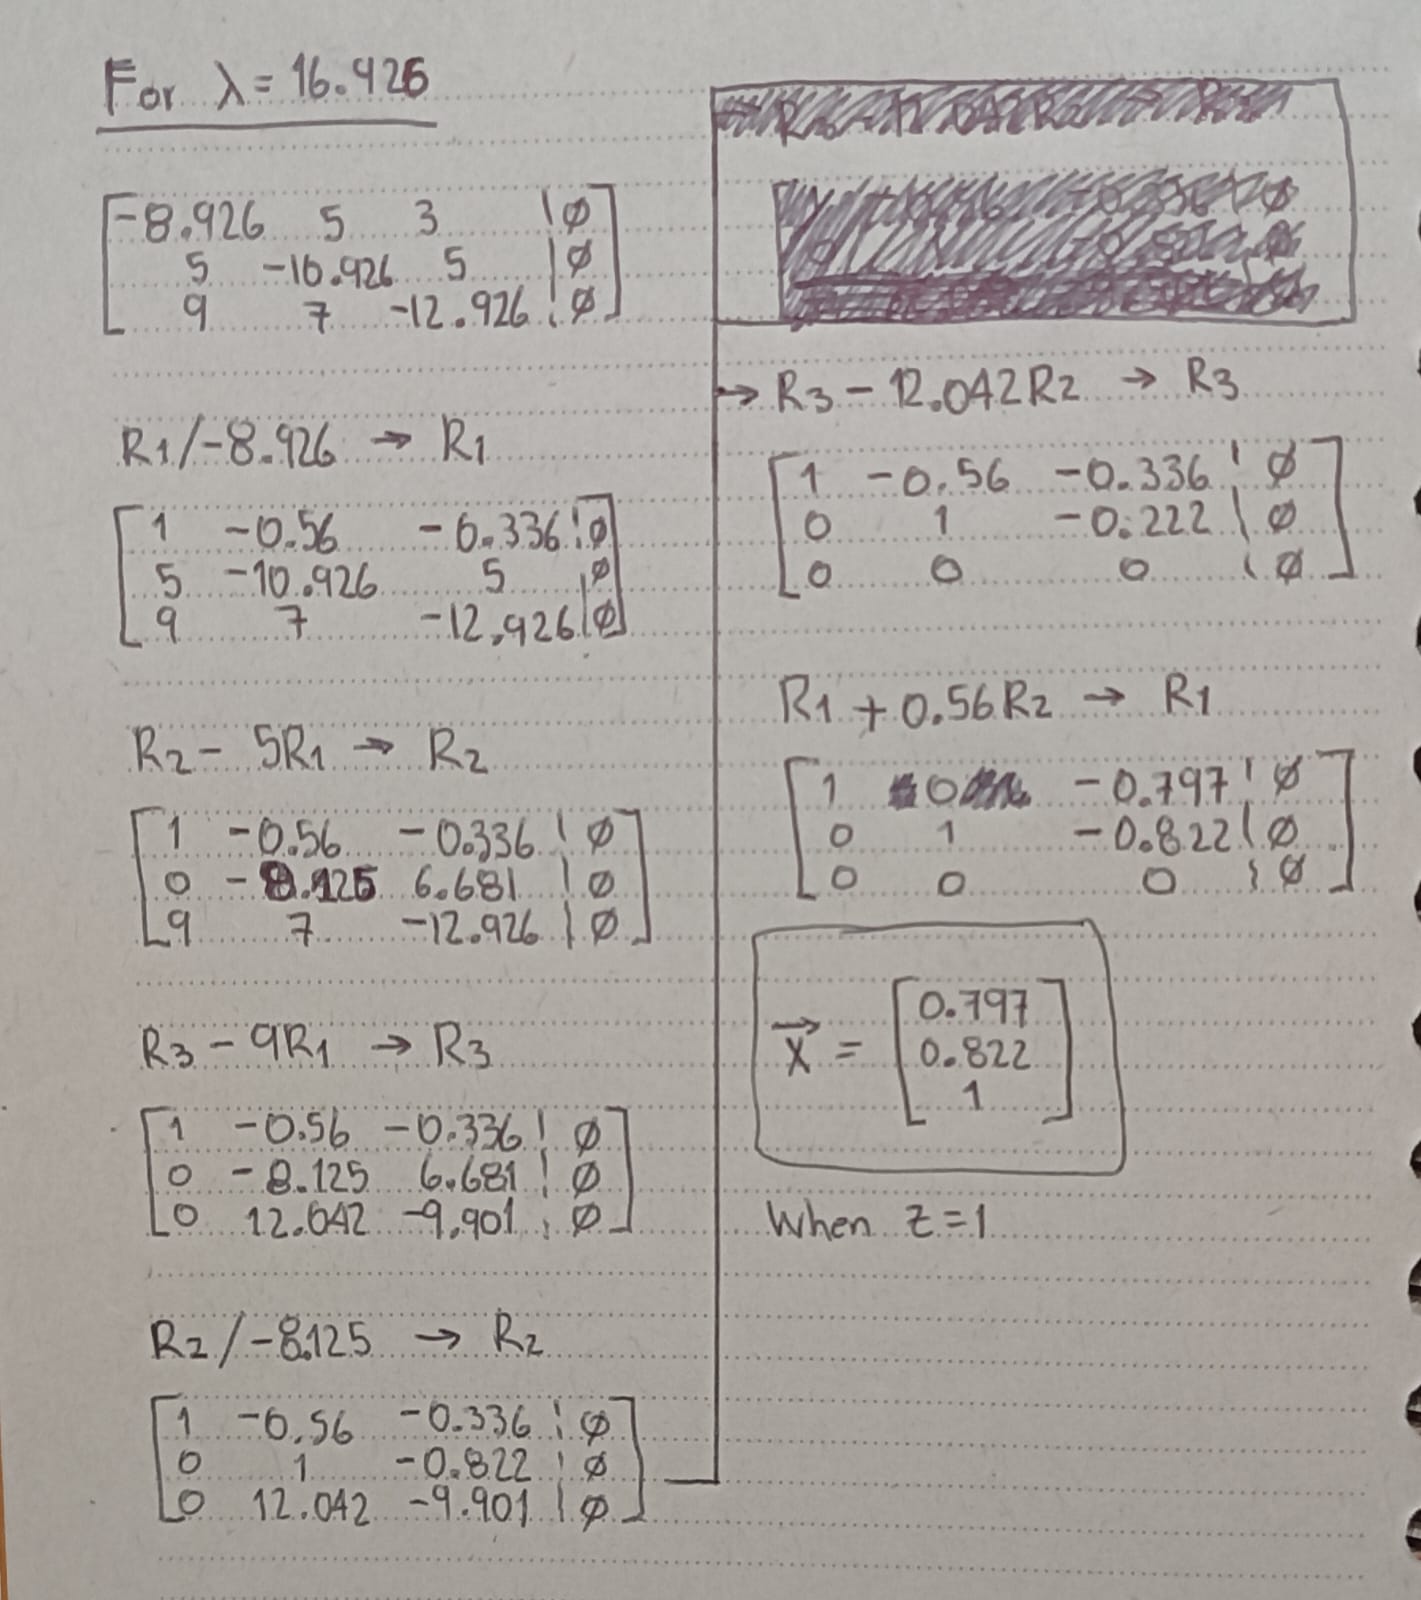 For λ = 16.926
[-8.926 5 3 | ∅]
[5 -10.926 5 | ∅]
[9 7 -12.926 | ∅]
R1/-8.926 → R1
[1 -0.56 -0.336 | ∅]
[5 -10.926 5 | ∅]
[9 7 -12.926 | ∅]
R2 - 5R1 → R2
[1 -0.56 -0.336 | ∅]
[0 -8.125 6.681 | ∅]
[9 7 -12.926 | ∅]
R3 - 9R1 → R3
[1 -0.56 -0.336 | ∅]
[0 -8.125 6.681 | ∅]
[0 12.042 -9.901 | ∅]
R2/-8.125 → R2
[1 -0.56 -0.336 | ∅]
[0 1 -0.822 | ∅]
[0 12.042 -9.901 | ∅]
→ R3 - 12.042R2 → R3
[1 -0.56 -0.336 | ∅]
[0 1 -0.222 | ∅]
[0 0 0 | ∅]
R1 + 0.56R2 → R1
[1 0 -0.797 | ∅]
[0 1 -0.822 | ∅]
[0 0 0 | ∅]
x⃗ = [0.797]
[0.822]
[1]
When z=1